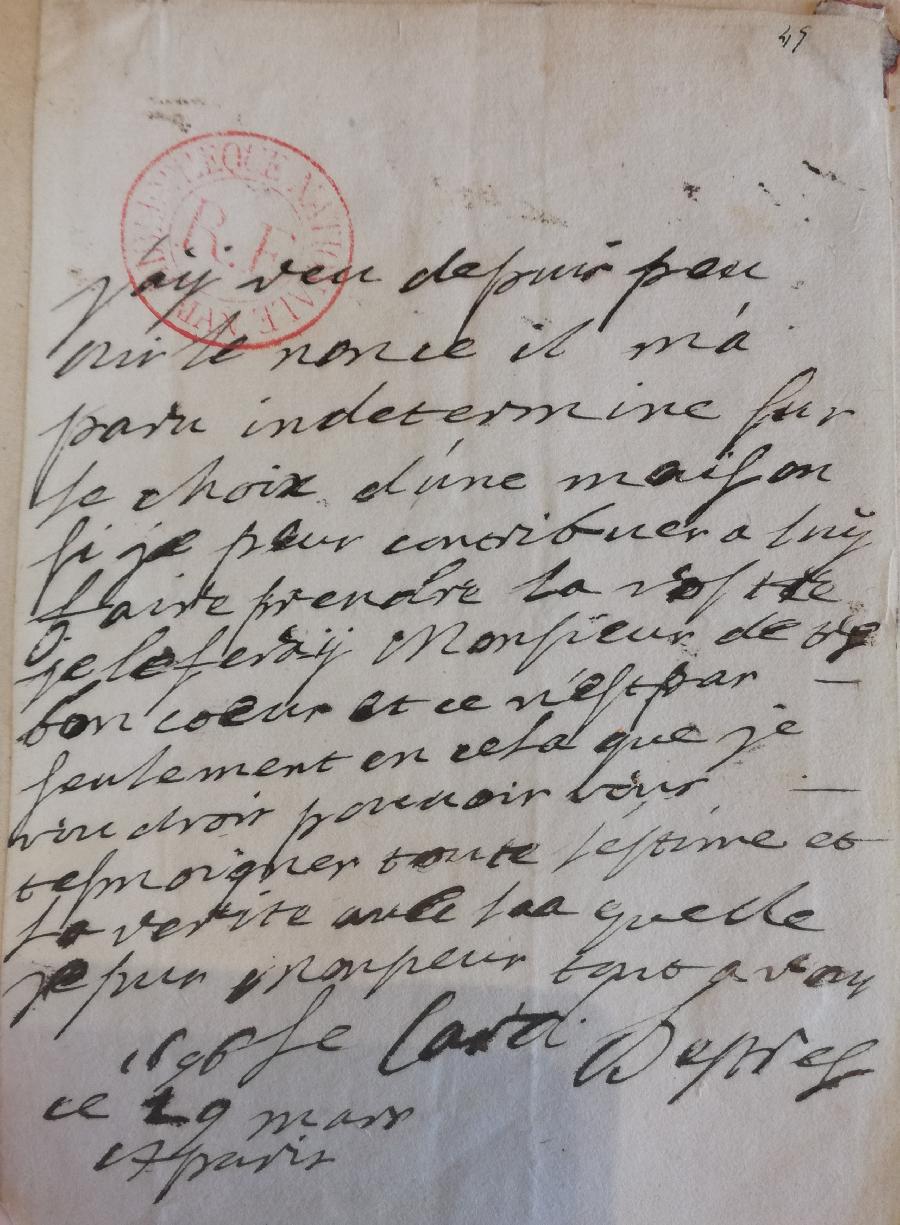 45
BIBLIOTHEQUE NATIONALE
R.F
j'aÿ veu depuis peu
le nonce il m'a
paru indetermine sur
le choix d'une maison
si je peus contribuer a luÿ
faire prendre la vostre
je le feraÿ Monsieur de tres
bon coeur et ce n'est pas
seulement en cela que je
voudrois pouuoir vous
tesmoigner toute l'estime et
la verite auec laa quelle
je suis Monsieur tout a vous
le Card. Destrées
1696
ce 29 mars
A paris